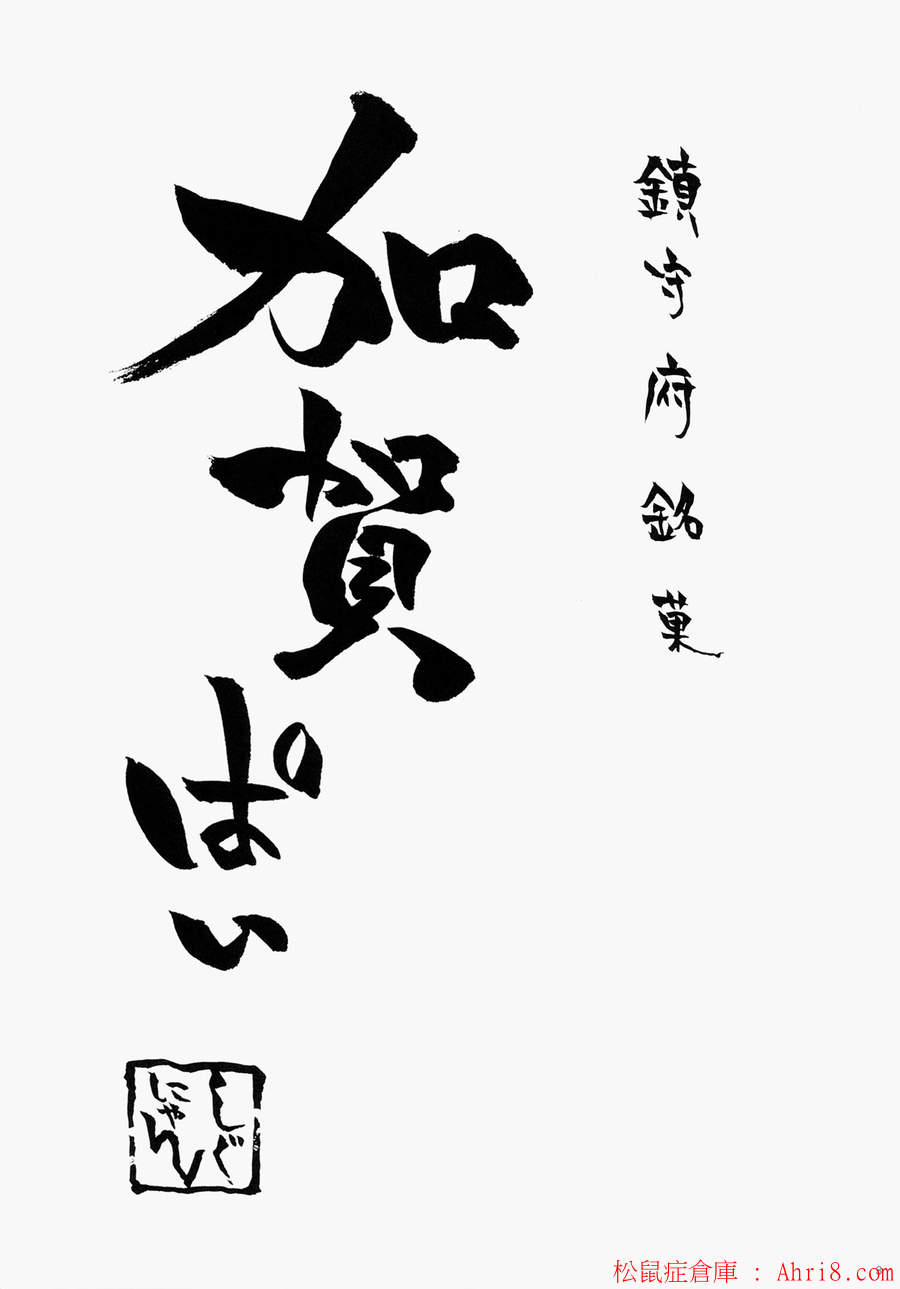 鎮守府銘菓
加賀ぱい
しぐ
にゃん
松鼠症倉庫 : Ahri8.com